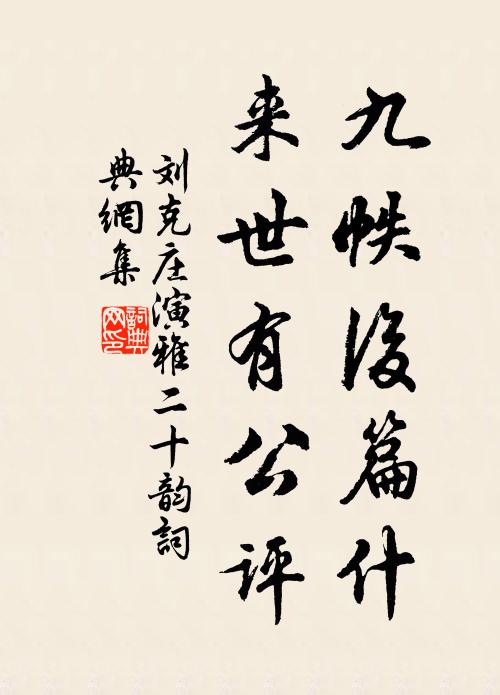 九帙後篇什
来世有公评
刘克庄演雅二十韵詞
典網集
詞典
网印